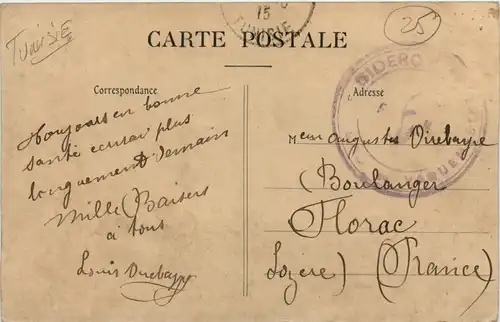 Tunisie
15
TUNISIE
25
CARTE POSTALE
Correspondance
Adresse
Toujours en bonne
santé ecrirai plus
longuement demain
Mille Baisers
à tous
Louis
DIDERO
PAQUE
Augustes
Boulanger
Florac
Lozère) (France)